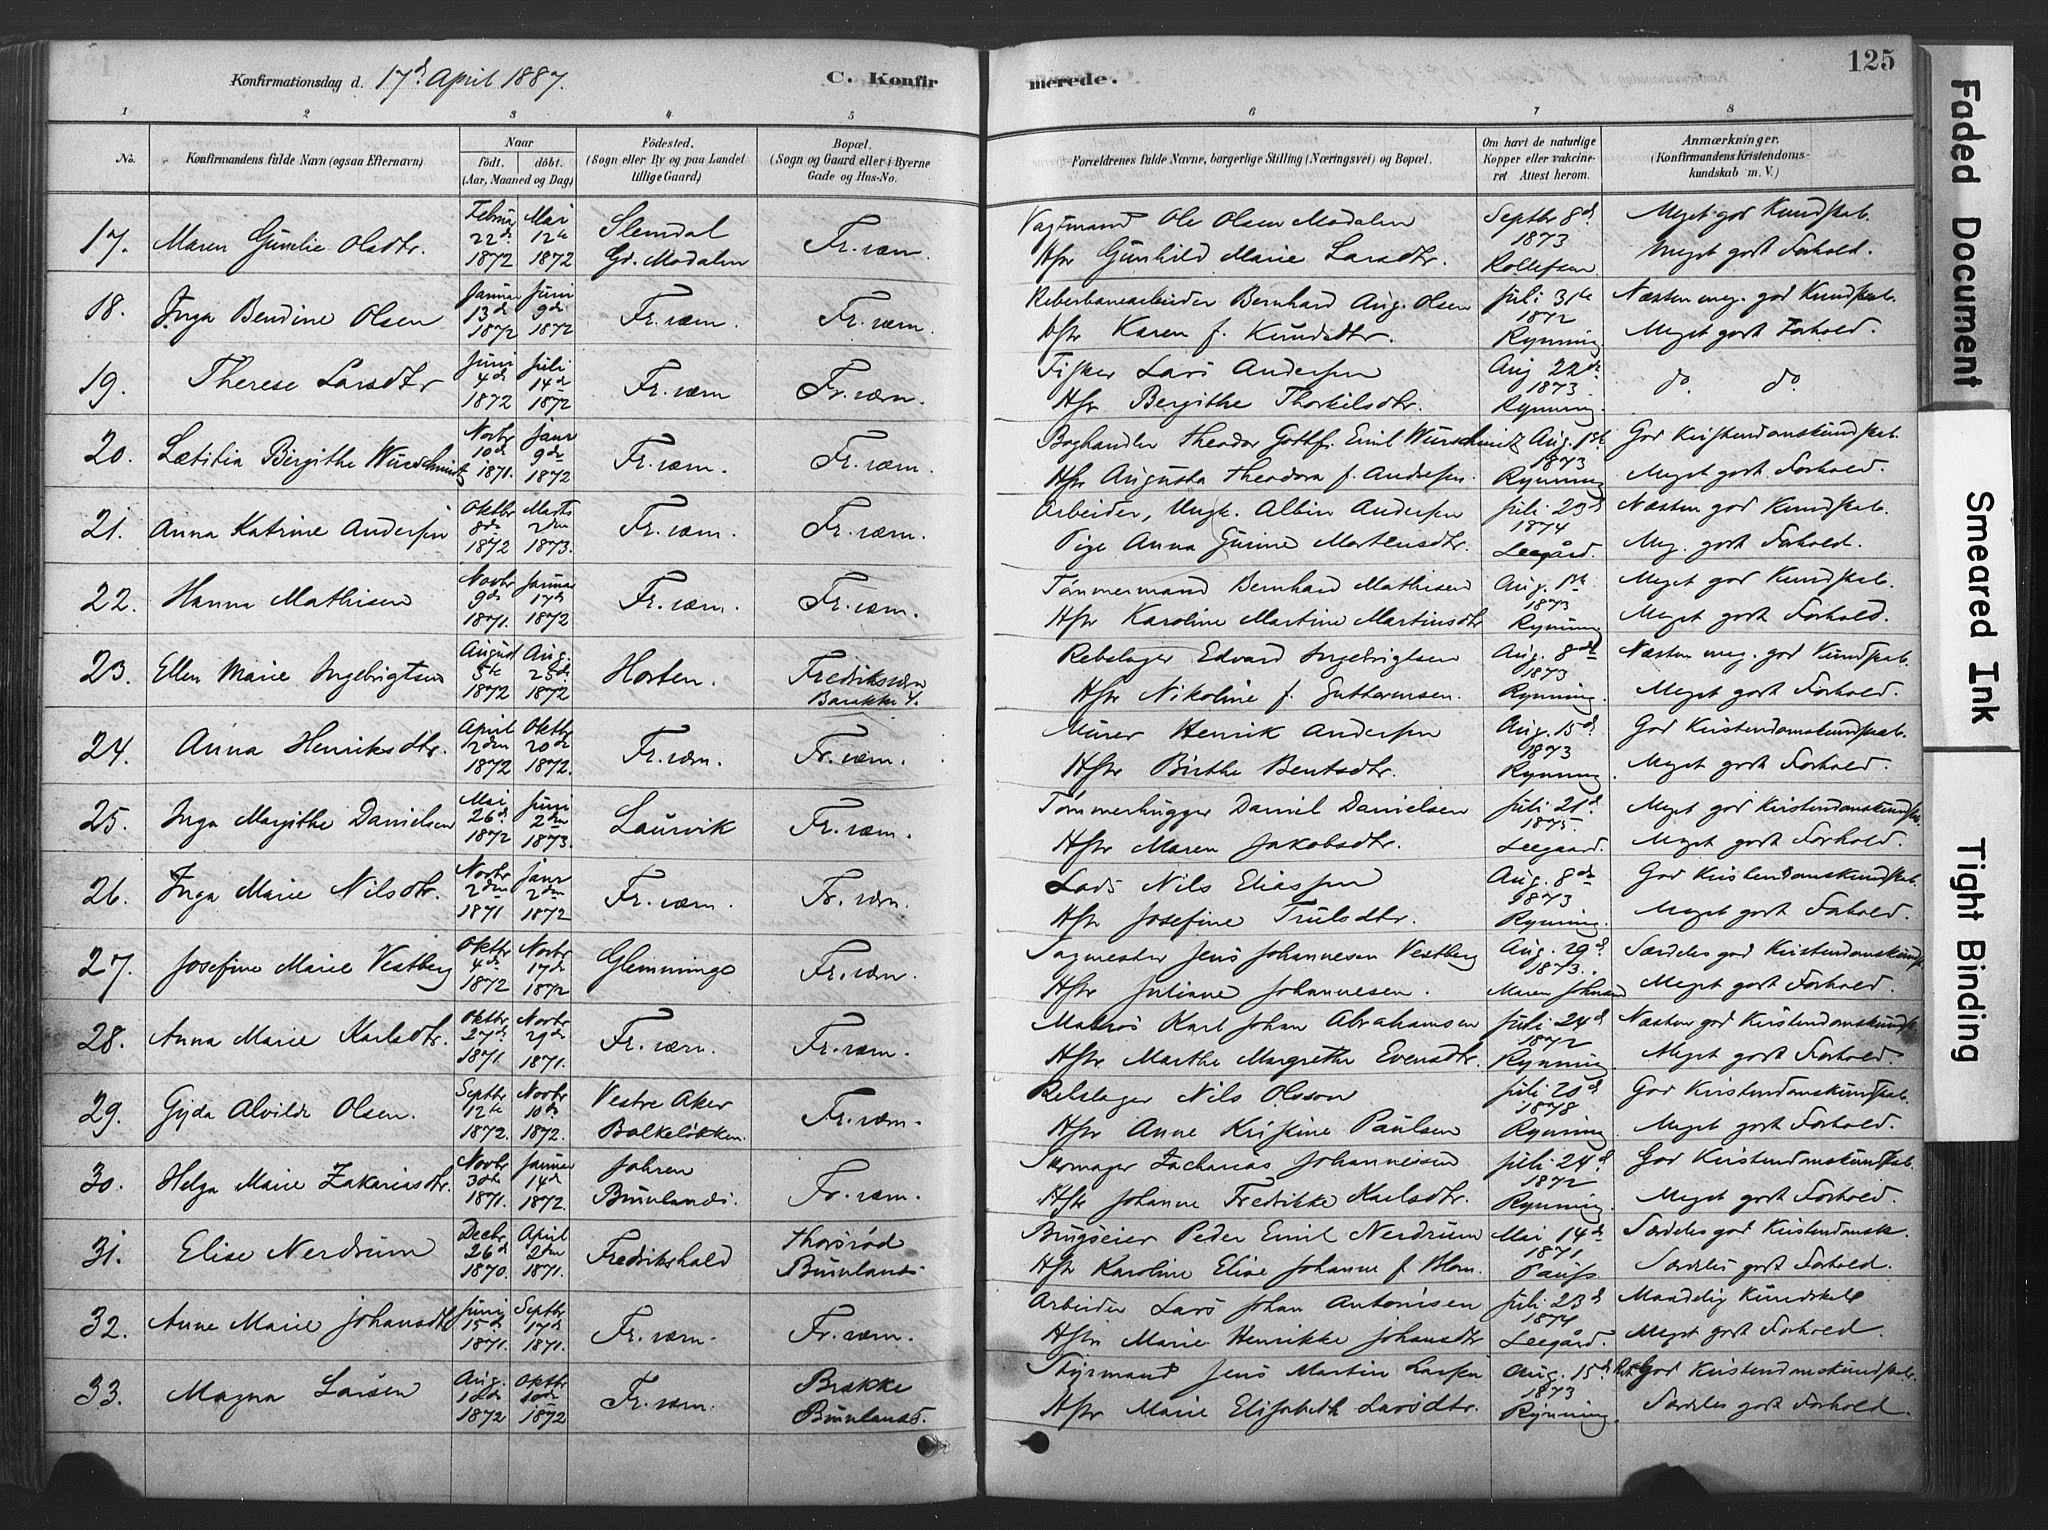 125
Konfirmationsdag d. 17d April 1887.
C. Konfirmerede.
1 2 3 4 5 6 7 8
No.
Konfirmandens fulde Navn (ogsaa Efternavn)
Naar
födt. döbt.
(Aar, Maaned og Dag)
Födested.
(Sogn eller By og paa Landet
tillige Gaard)
Bopæl.
(Sogn og Gaard eller i Byerne
Gade og Hus-No.
Forældrenes fulde Navne, borgerlige Stilling (Næringsvei) og Bopæl.
Om havt de naturlige
Kopper eller vakcine-
ret. Attest herom.
Anmærkninger.
(Konfirmandens Kristendoms-
kundskab m. V.)
17. Maren Gunelie Olsdtr. Februar 22de 1872 Mai 12te 1872 Slemdal Gd. Modalen Fr.værn. Vagtmand Ole Olsen Modalen Hstr Gunhild Marie Larsdtr. Septbr 8d 1873 Rollefsen Meget god Kundskab. Meget godt Forhold.
18. Inga Bendine Olsen Januar 13d 1872 Juni 9de 1872 Fr.værn. Fr.værn. Reberbanearbeider Bernhard Aug. Olsen Hstr Karen f. Knudsdtr. Juli 31te 1872 Rynning Næsten meg. god Kundskab. Meget godt Forhold.
19. Therese Larsdtr Juni 4de 1872 Juli 14de 1872 Fr.værn Fr.værn. Fisker Lars Andersen Hstr Bergithe Thorkilsdtr. Aug 22de 1873 Rynning. do. do.
20. Lætitia Birgithe Wurschmidt Novbr 10d 1871. Janr 9de 1872 Fr.værn. Fr.værn. Boghandler Theodor Gottf. Emil Wurschmitz Hstr Augusta Theodora f. Andersen. Aug. 1ste 1873 Rynning God Kristendomskundskab. Meget godt Forhold.
21. Anna Katrine Andersen Oktbr 8de 1872 Marts 2den 1873. Fr.værn. Fr.værn. Arbeider, Ungk. Albin Andersen Pige Anna Gurine Mortensdtr. Juli 23d 1874 Leegård. Næsten god Kundskab. Meg. godt Forhold.
22. Hanna Mathisen Novbr 9de 1871. Januar 17de 1872 Fr.værn. Fr.værn. Tømmermand Bernhard Mathisen Hstr Karoline Martine Martinsdtr Aug. 1ste 1873 Rynning Meget god Kundskab. Meget godt Forhold.
23. Ellen Marie Ingebrigtsen August 5te 1872 Aug. 25de 1872 Horten. Fredriksværn Barakke 4. Rebslager Edvard Ingebrigtsen Hstr Nikoline f. Guttormsen. Aug. 8de 1873 Rynning. Næsten meg. god Kundskab. Meget godt Forhold.
24. Anna Henriksdtr. April 12den 1872 Oktbr 20de 1872. Fr.værn. Fr.værn. Murer Henrik Andersen Hstr Birthe Bentsdtr. Aug. 15d 1873 Rynning. God Kristendomskundskab. Meget godt Forhold.
25. Inga Margithe Danielsen Mai 26de 1872 Juni 2den 1873. Laurvik Fr.værn. Tømmerhugger Daniel Danielsen Hstr Maren Jakobsdtr. Juli 21d 1875. Leegaard. Meget god Kristendomskundskab. Meget godt Forhold.
26. Inga Marie Nilsdtr. Novbr 2den 1871 Janr 2den 1872 Fr.værn. Fr.værn. Lods Nils Eliassen Hstr Josefine Trulsdtr. Aug. 8de 1873 Rynning. God Kristendomskundskab. Meget godt Forhold.
27. Josefine Marie Vestberg Oktbr 4de 1872 Novbr 17de 1872 Glemminge Fr.værn. Sagmester Jens Johannesen Vestberg Hstr Juliane Johannesen. Aug. 29d 1873. Maren Johnsen Særdeles god Kristendomskundsk. Meget godt Forhold.
28. Anna Marie Karlsdtr. Oktbr 27de 1871. Novbr 29de 1871. Fr.værn. Fr.værn. Matros Karl Johan Abrahamsen Hstr Marthe Margrethe Evensdtr. Juli 24d 1872 Rynning. Næsten god Kristendomskundsk. Meget godt Forhold.
29. Gyda Alvilde Olsen. Septbr 12te 1872. Novbr 10de 1872. Vestre Aker Balkeløkken. Fr.værn. Rebslager Nils Olsson Hstr Anne Kristine Paulsen Juli 20d 1878 Rynning. God Kristendomskundskab. Meget godt Forhold.
30. Helga Marie Zakariasdtr. Novbr 30te 1871. Januar 14d 1872. Johren Brunlanes. Fr.værn. Skomager Zacharias Johannesen Hstr Johanne Fredrikke Karlsdtr. Juli 24d 1872 Rynning. God Kristendomskundskab. Meget godt Forhold.
31. Elise Nerdrum Decbr 26d 1870. April 2den 1871. Fredrikshald Thorsrød Brunlanes Brugseier Peder Emil Nerdrum Hstr Karoline Elise Johanne f. Blom. Mai 14de 1871 Pauss Særdeles god Kristendomsk. Særdeles godt Forhold.
32. Anne Marie Johansdtr Juni 15de 1871. Septbr 17de 1871. Fr.værn. Fr.værn. Arbeider Lars Johan Antonisen Hstr Marie Henrikke Johansdtr Juli 23d 1874 Leegård. Maadelig Kundskab Meget godt Forhold.
33. Magna Larsen Aug. 18de 1872 Oktbr 10de 1872 Fr.værn. Brække Brunlanes. Styrmand Jens Martin Larsen Hstr Marie Elisabeth Larsdtr. Aug. 15d 1873 Rynning. God Kristendomskundskab. Særdeles godt Forhold.
Faded Document
Smeared Ink
Tight Binding